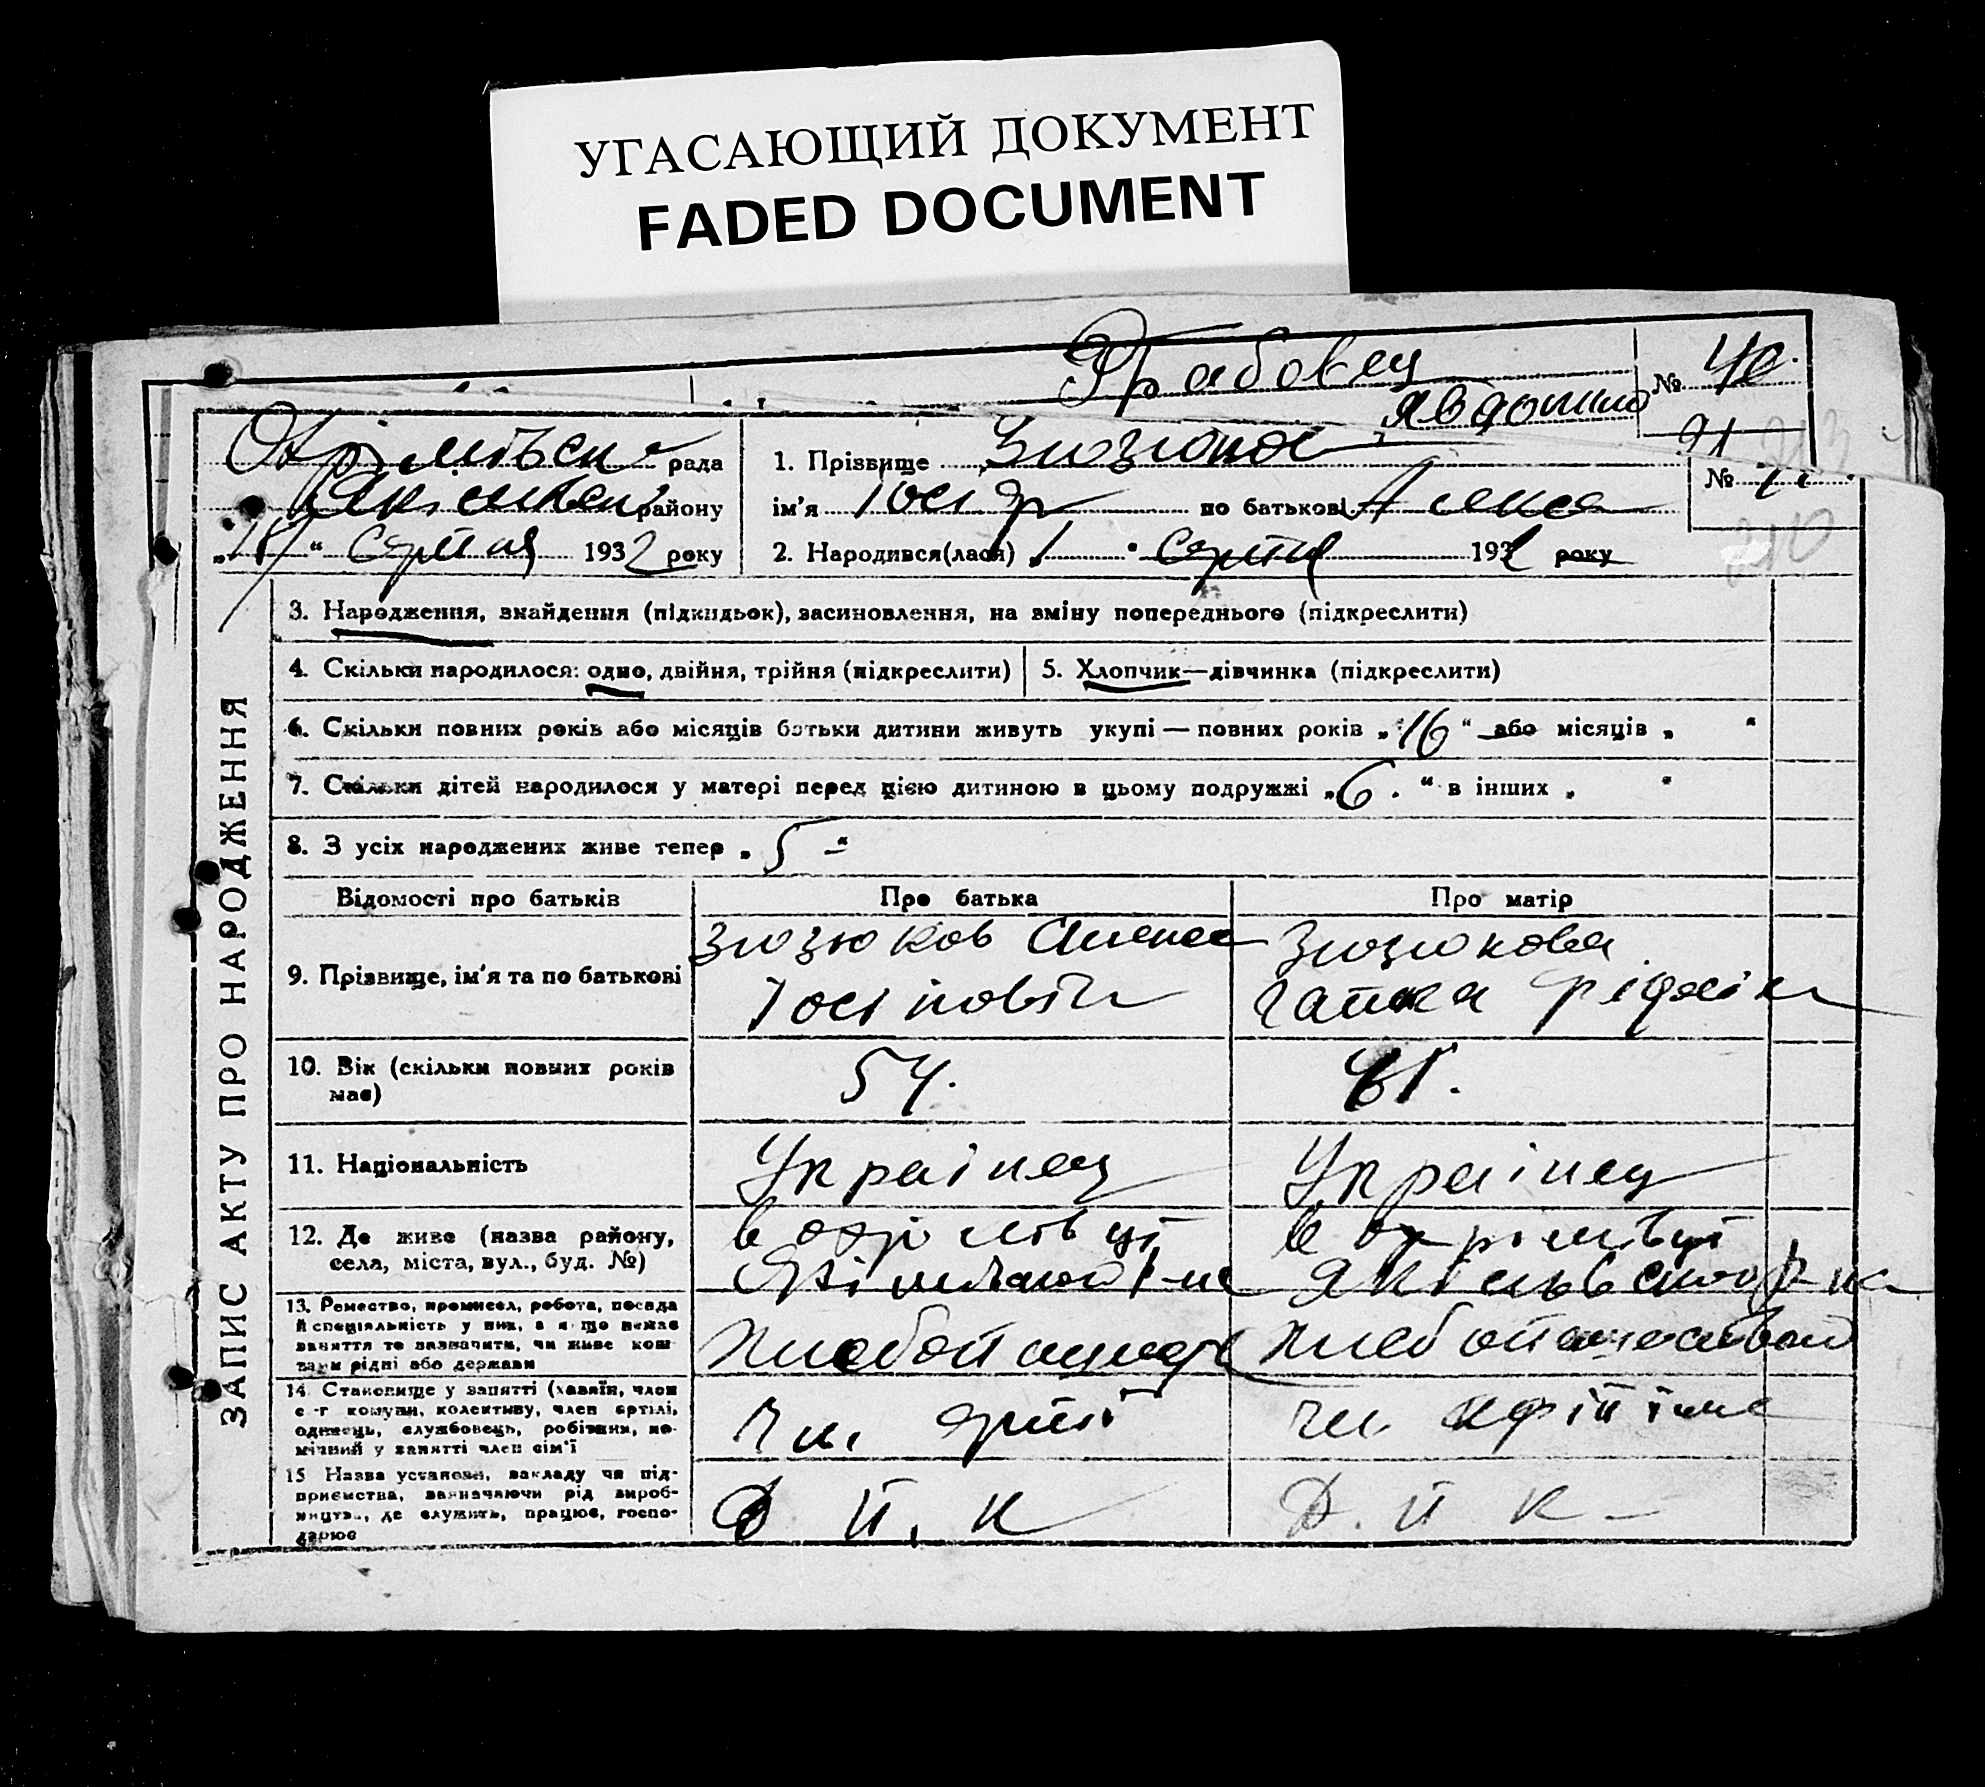 УГАСАЮЩИЙ ДОКУМЕНТ
FADED DOCUMENT
№ 40.
рада
району
" Серпня 1932 року
1. Прізвище Зюзюков
ім'я Іосip по батькові Алексе
2. Народився(лася) 1 " Серпня 1932 року
№
210
ЗАПИС АКТУ ПРО НАРОДЖЕННЯ
3. Народження, знайдення (підкидьок), засиновлення, на зміну попереднього (підкреслити)
4. Скільки народилося: одно, двійня, трійня (підкреслити)
5. Хлопчик—дівчинка (підкреслити)
6. Скільки повних років або місяців батьки дитини живуть укупі — повних років „16" або місяців „ "
7. Скільки дітей народилося у матері перед цією дитиною в цьому подружжі „6." в інших „ "
8. З усіх народжених живе тепер „5"
Відомості про батьків
Про батька
Про матір
9. Прізвище, ім'я та по батькові
Зюзюков Алексе
Іосіповіч
Зюзюкова
Гапка
10. Вік (скільки повних років
має)
54.
41.
11. Національність
Українец
Українец
12. Де живе (назва району,
села, міста, вул., буд. №)
13. Ремество, промисел, робота, посада
й спеціяльність у них, а якщо немає
заняття то зазначити, чи живе кош-
тами рідні або держави
14. Становище у занятті (хазяїн, член
с-г комуни, колективу, член артілі,
одинець, службовець, робітник, по-
мічний у занятті член сім'ї
чл.
чл.
15. Назва установи, закладу чи під-
приємства, зазначаючи рід вироб-
ництва, де служить, працює, госпо-
дарює
Д. П. К
Д. П. К